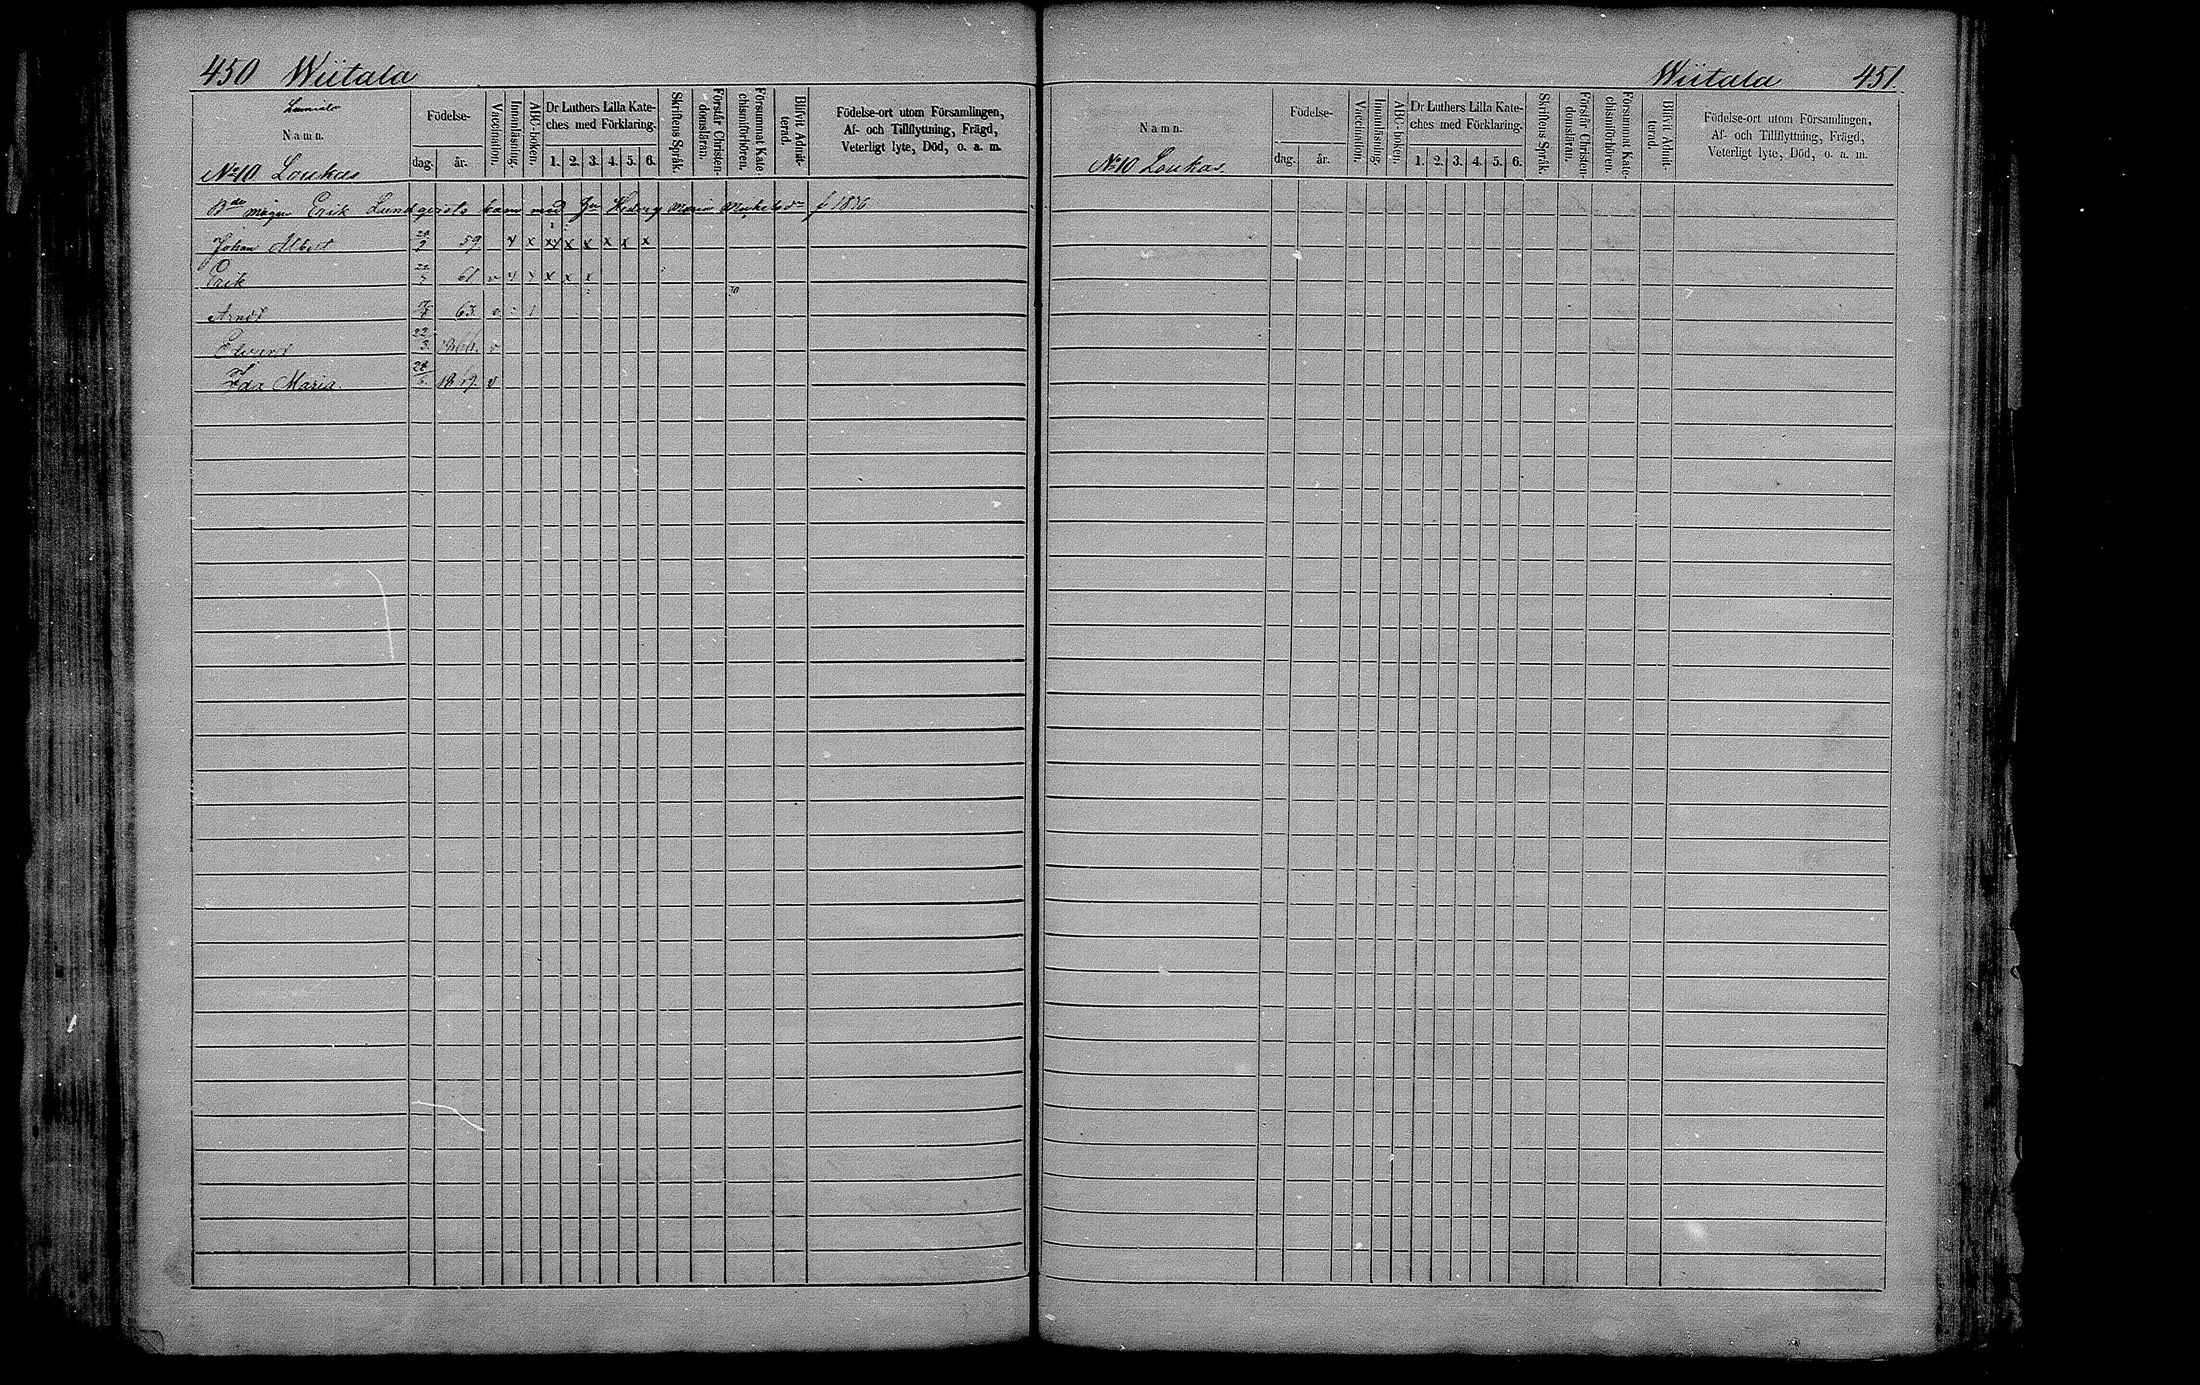 450 Wiitala
Namn.
Födelse-
dag. år.
Vaccination.
Innanläsning.
ABC-boken.
Dr Luthers Lilla Kate-
ches med Förklaring.
1. 2. 3. 4. 5. 6.
Skriftens Språk.
Förstår Christen-
domsläran.
Försummat Kate-
chismiförhören.
Blifvit Admit-
terad.
Födelse-ort utom Församlingen,
Af- och Tillflyttning, Frägd,
Veterligt lyte, Död, o. a. m.
No 10 Loukas
Bde mågen Erik Lundqvists barn med Maria f 1836
Johan Albert 59 4 x x x x x x x
Erik 61 v 4 x x x
63
Edvard 22/3 1866 v
Ida Maria 1869 v
Wiitala 451.
Namn.
Födelse-
dag. år.
Vaccination.
Innanläsning.
ABC-boken.
Dr Luthers Lilla Kate-
ches med Förklaring.
1. 2. 3. 4. 5. 6.
Skriftens Språk.
Förstår Christen-
domsläran.
Försummat Kate-
chismiförhören.
Blifvit Admit-
terad.
Födelse-ort utom Församlingen,
Af- och Tillflyttning, Frägd,
Veterligt lyte, Död, o. a. m.
No 10 Loukas.